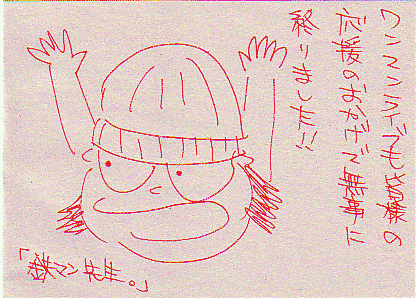 ワンマンライブも皆様の
応援のおかげで無事に
終りました!!